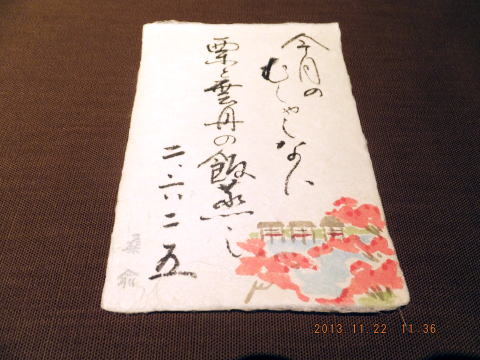 今月の
むしやしなひ
栗と雲丹の飯蒸し
二、六二五
桑兪
2013 11 22 11:36